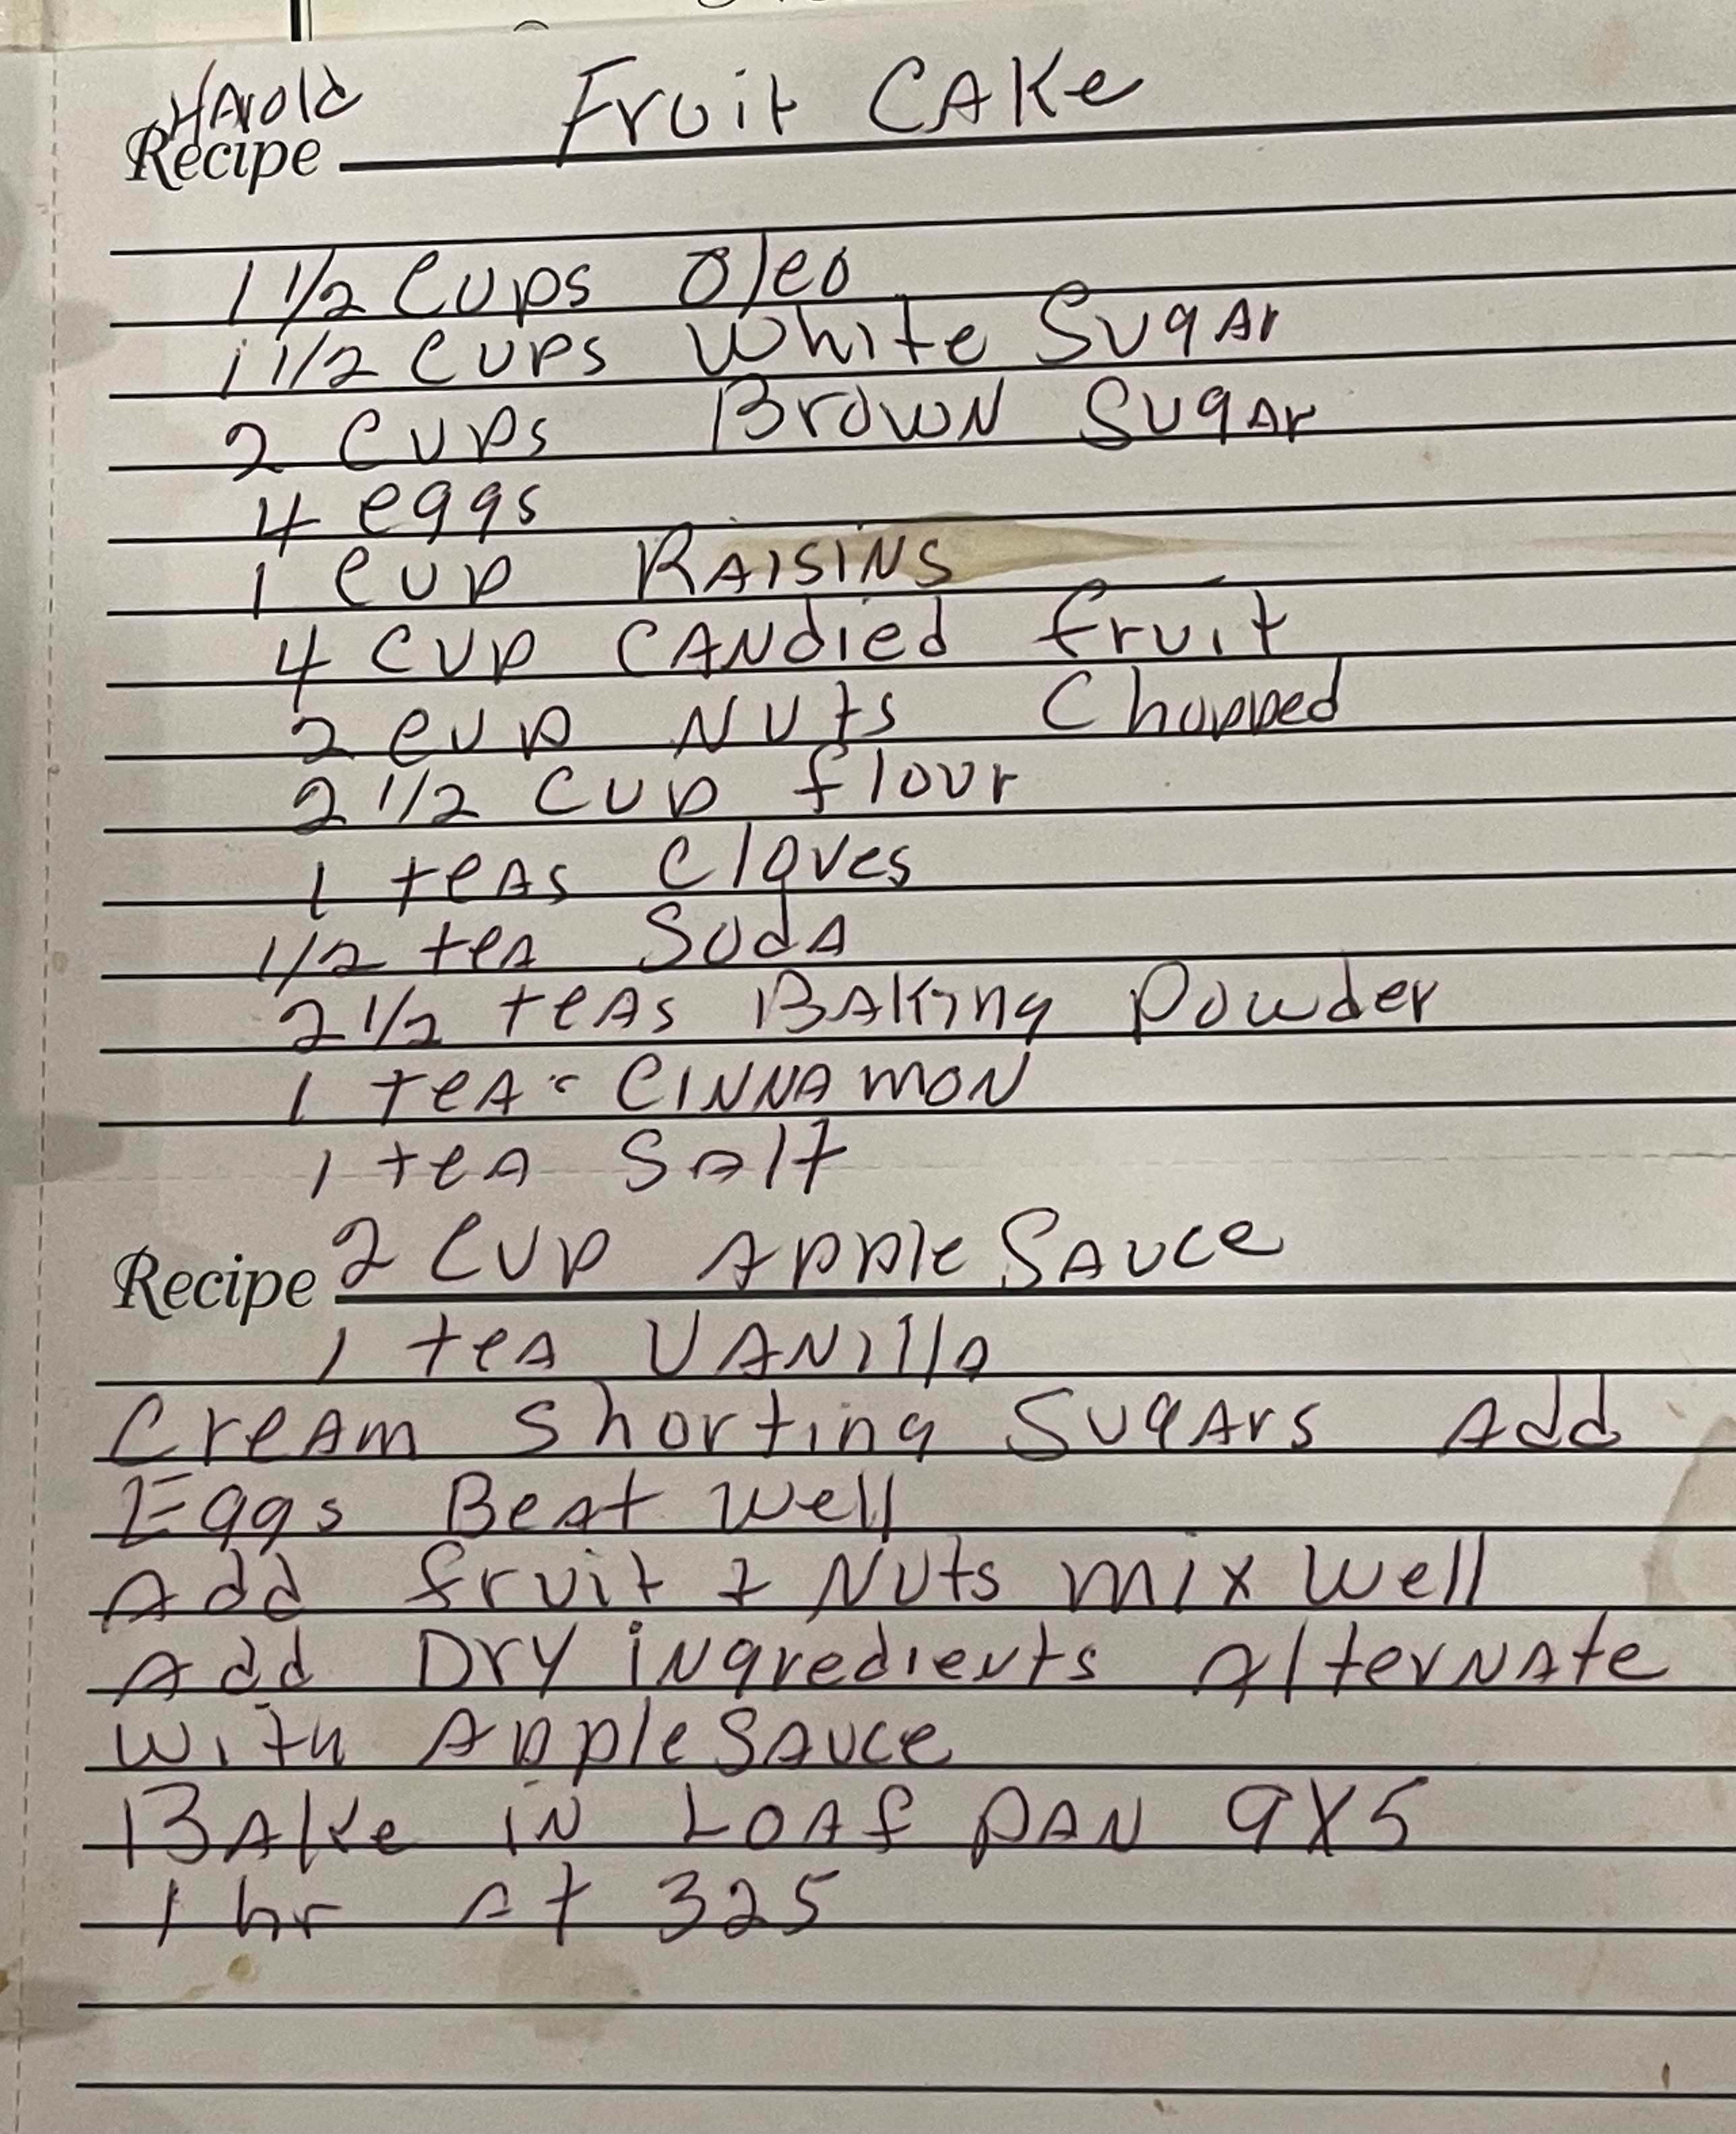 Harold
Recipe Fruit Cake
1 1/2 Cups Oleo
1 1/2 Cups White Sugar
2 Cups Brown Sugar
4 eggs
1 Cup Raisins
4 Cup Candied fruit
2 Cup Nuts Chopped
2 1/2 Cup flour
1 teas Cloves
1/2 tea Soda
2 1/2 teas Baking Powder
1 tea. Cinnamon
1 tea Salt
Recipe 2 Cup Apple Sauce
1 tea Vanilla
Cream Shorting Sugars Add
Eggs Beat well
Add fruit + Nuts mix well
Add Dry ingredients Alternate
with Apple Sauce
Bake in Loaf pan 9X5
1 hr at 325